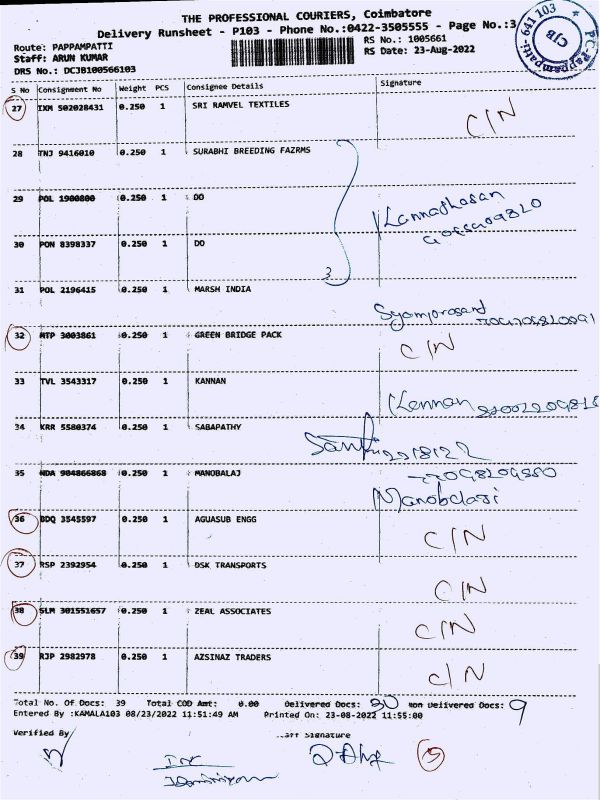 THE PROFESSIONAL COURIERS, Coimbatore
Delivery Runsheet - P103 - Phone No.:0422-3505555 - Page No.:3
Route: PAPPAMPATTI
RS No.: 1005661
Staff: ARUN KUMAR
RS Date: 23-Aug-2022
DRS No.: DCJB100566103
PC-Pappampatti-641 103
CJB
S No Consignment No Weight PCS Consignee Details Signature
27 IXM 502028431 0.250 1 SRI RAMVEL TEXTILES C/N
28 TNJ 9416010 0.250 1 SURABHI BREEDING FAZRMS
29 POL 1900800 0.250 1 DO
30 PON 8398337 0.250 1 DO
3
31 POL 2196415 0.250 1 MARSH INDIA
32 MTP 3003861 0.250 1 GREEN BRIDGE PACK C/N
33 TVL 3543317 0.250 1 KANNAN Kannan
34 KRR 5580374 0.250 1 SABAPATHY
35 NDA 904866868 0.250 1 MANOBALAJ
36 BDQ 3545597 0.250 1 AGUASUB ENGG C/N
37 RSP 2392954 0.250 1 DSK TRANSPORTS C/N
38 SLM 301551657 0.250 1 ZEAL ASSOCIATES C/N
39 RJP 2982978 0.250 1 AZSINAZ TRADERS C/N
Total No. Of Docs: 39 Total COD Amt: 0.00 Delivered Docs: 30 Non Delivered Docs: 9
Entered By :KAMALA103 08/23/2022 11:51:49 AM Printed On: 23-08-2022 11:55:00
Verified By Staff Signature